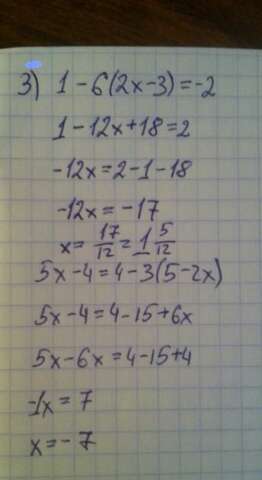 3) 1 - 6(2x-3)=-2
1-12x+18=2
-12x=2-1-18
-12x=-17
x= 17/12 = 1 5/12
5x-4=4-3(5-2x)
5x-4=4-15+6x
5x-6x=4-15+4
-1x=7
x=-7